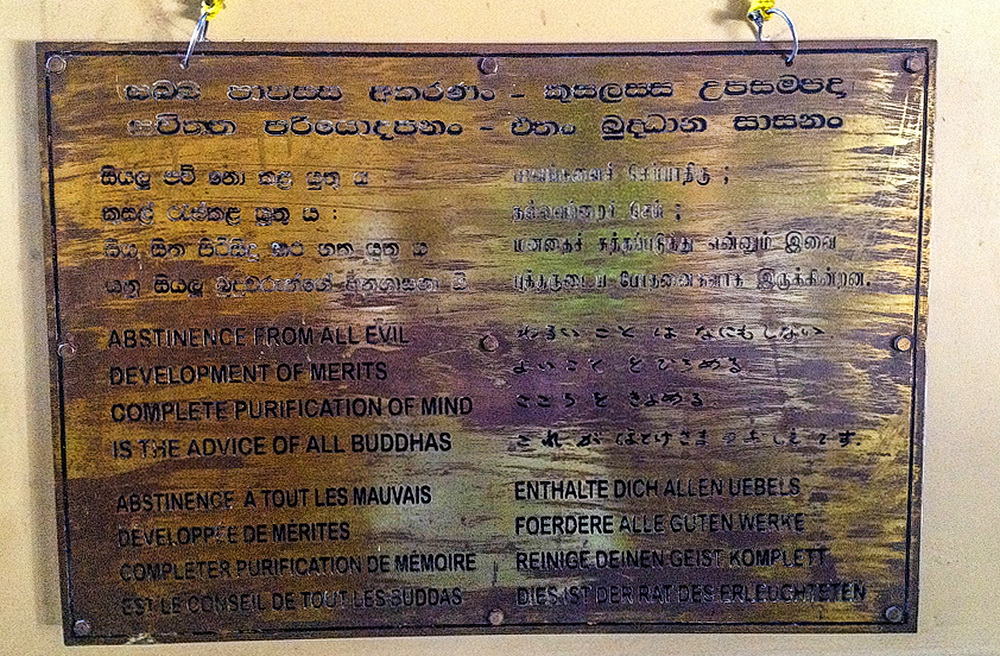 සබ්බ පාපස්ස අකරණං – කුසලස්ස උපසම්පදා
සචිත්ත පරියොදපනං – එතං බුද්ධාන සාසනං
සියලු පව් නො කළ යුතු ය
කුසල් රැස්කළ යුතු ය :
සිය සිත පිරිසිදු කර ගත යුතු ය
යනු සියලු බුදුවරුන්ගේ අනුශාසනා යි
பாவங்களைச் செய்யாதிரு ;
நல்லவற்றைச் செய் ;
மனதைச் சுத்தப்படுத்து என்னும் இவை
புத்தருடைய போதனைகளாக இருக்கின்றன.
ABSTINENCE FROM ALL EVIL
DEVELOPMENT OF MERITS
COMPLETE PURIFICATION OF MIND
IS THE ADVICE OF ALL BUDDHAS
わるい ことは なにもしない.
よいこと と ひろめる
こころを きよめる.
これが ほとけさまのおしえです.
ABSTINENCE A TOUT LES MAUVAIS
DÉVELOPPÉE DE MÉRITES
COMPLETER PURIFICATION DE MÉMOIRE
EST LE CONSEIL DE TOUT LES BUDDAS
ENTHALTE DICH ALLEN UEBELS
FOERDERE ALLE GUTEN WERKE
REINIGE DEINEN GEIST KOMPLETT
DIES IST DER RAT DES ERLEUCHTETEN